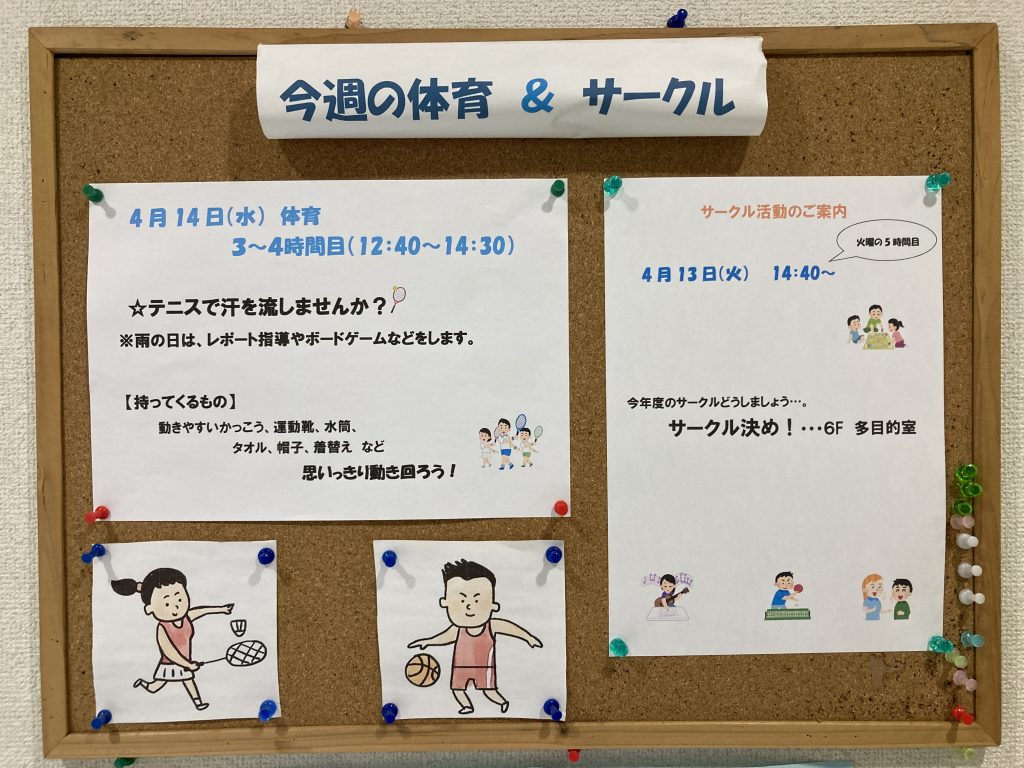 今週の体育 & サークル
4月14日(水) 体育
3～4時間目(12:40～14:30)
☆テニスで汗を流しませんか？
※雨の日は、レポート指導やボードゲームなどをします。
【持ってくるもの】
動きやすいかっこう、運動靴、水筒、
タオル、帽子、着替え など
思いっきり動き回ろう！
サークル活動のご案内
火曜の5時間目
4月13日(火) 14:40～
今年度のサークルどうしましょう…。
サークル決め！･･･6F 多目的室